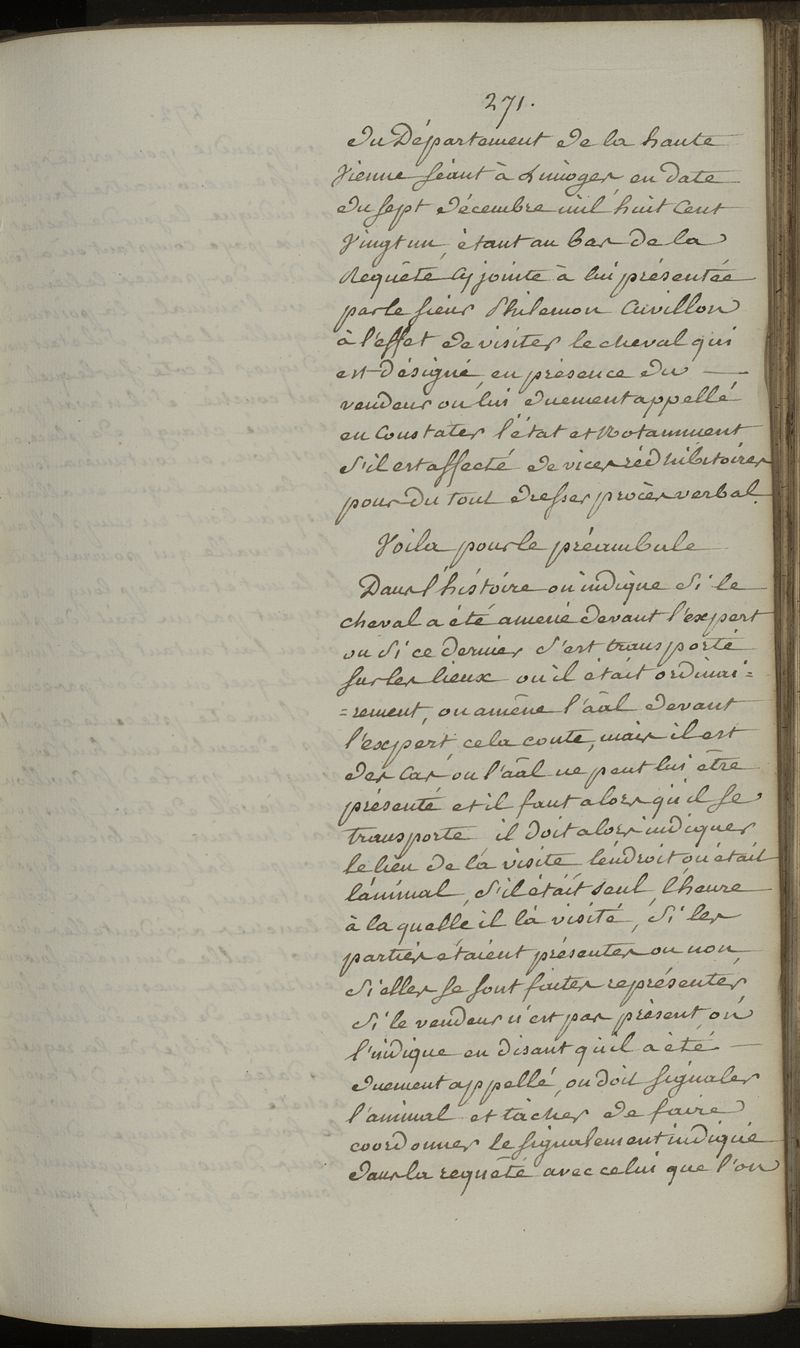 271.
du Département de la haute
Vienne séant à Limoges en date
du sept décembre mil huit cent
vingt un, étant au bas de la
Requête cy jointe à lui présentée
par le sieur Philemon Cuvillon
à l'effet de visiter le cheval qui
est désigné en présence du —
vendeur ou lui duement appellé
en Constater l'état et Notamment
s'il est affecté de vices rédhibitoires
pour du tout dresser procès verbal.
Voila pour le préambule
Dans l'histoire on indique si le
cheval a été amené devant l'expert
ou si ce dernier s'est transporté
sur les lieux ou il était ordinai=
=rement, on amène l'aâl devant
l'expert cela coute, mais il est
des cas ou l'aâl ne peut lui être
présenté et il faut alors qu'il se
transporte il doit alors indiquer
le lieu de la visite l'endroit ou était
l'animal, s'il était seul, l'heure
à laquelle il l'a visité, si les
parties étaient présentes ou non,
si elles se sont faites représenter
si le vendeur n'est pas présent, on
l'indique en disant qu'il a été —
duement appellé, on doit signaler
l'animal et tâcher de faire
coordonner le signalement indiqué
dans la requête avec celui que l'on